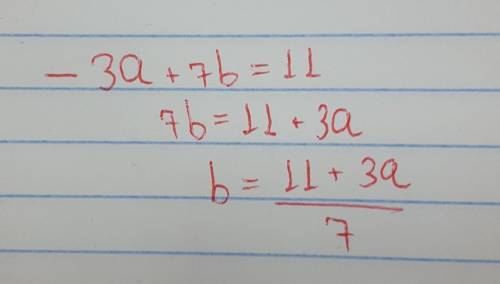 - 3a + 7b = 11
7b = 11 + 3a
b = (11 + 3a) / 7